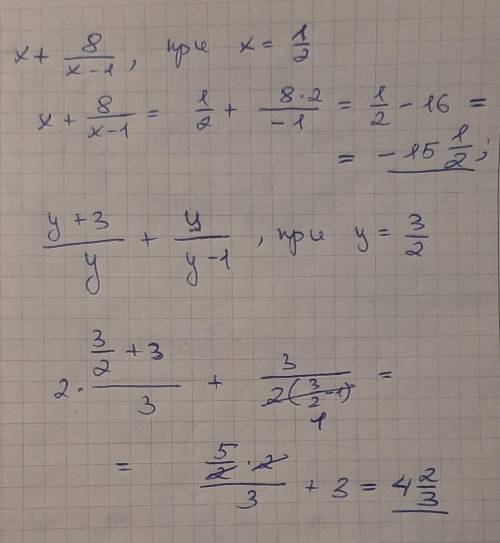 x + 8/(x-1), при x = 1/2
x + 8/(x-1) = 1/2 + 8·2/(-1) = 1/2 - 16 =
= -15 1/2;
(y+3)/y + y/(y-1), при y = 3/2
2 · (3/2 + 3)/3 + 3/(2(3/2-1)) =
1
= (5/2 · 2)/3 + 3 = 4 2/3